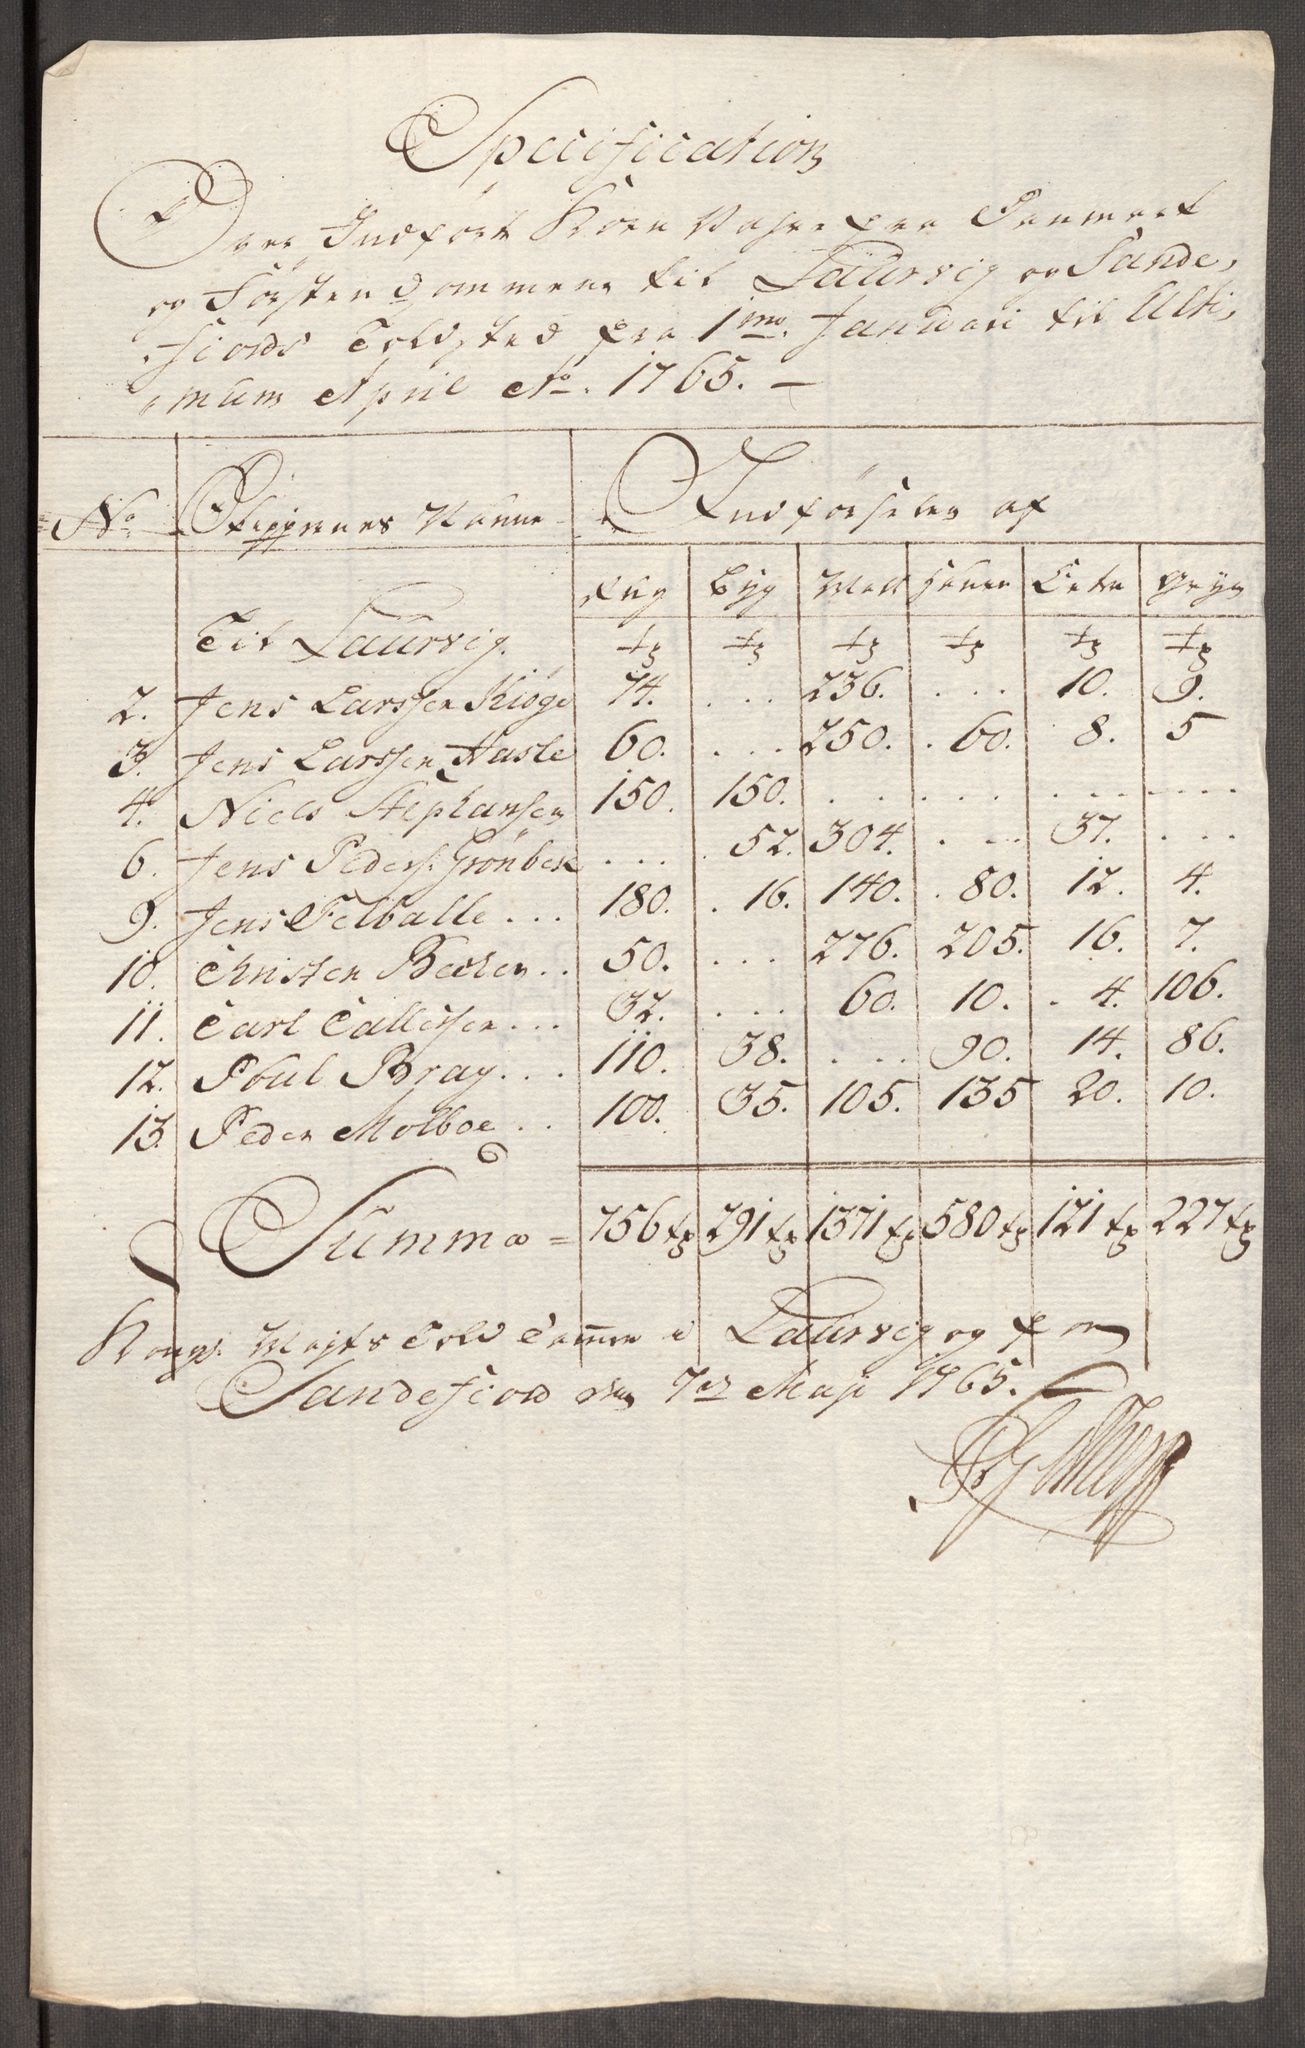 Specification
Over Indført Korn Vahre fra Danmark
og Førstendømmene til Laurvig og Sande,
fiords Toldsted fra 1mo. Januari til Ulti,
mum April Ao. 1765. —
No. Skippernes Nafne Indførselen af
Rug Byg Malt Haure Erter Gryn
Til Laurvig. tr tr tr tr tr tr
2. Jens Larssen Kiøge 74. ... 236. ... 10. 9.
3. Jens Larssen Hasle 60. ... 250. 60. 8. 5
4. Niels Stephansen 150. 150. ... ... ... ...
6. Jens Peders: Grønbek ... 52. 304. ... 37. ...
9. Jens Felballe ... 180. 16. 140. 80. 12. 4.
10. Christen Becker .. 50. ... 276. 205. 16. 7.
11. Carl Callessen ... 32. ... 60. 10. 4. 106.
12. Poul Bray ... 110. 38. ... 90. 14. 86.
13. Peder Molboe .. 100. 35. 105. 135 20. 10.
Summa = 756 tr 291 tr 1371 tr 580 tr 121 tr 227 tr
Kongl. Mayts Told Cammer i Laurvig og for
Sandefiord den 7de Maji 1765.